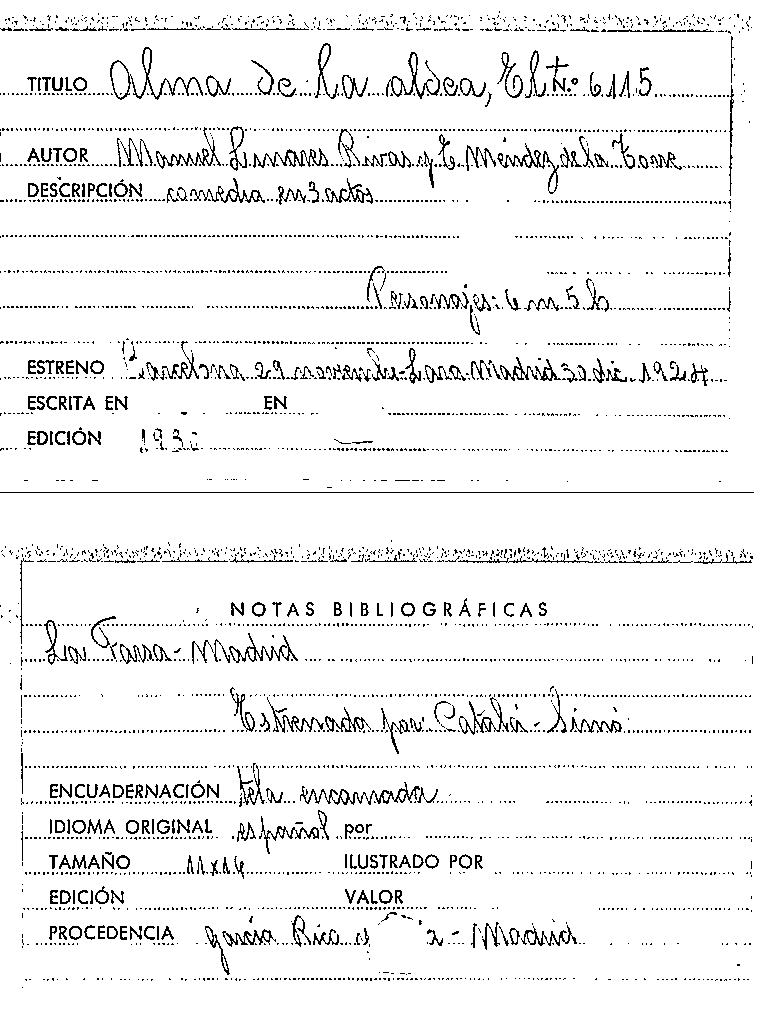 TITULO Alma de la aldea, El Tr.º 6115
AUTOR Manuel Linares Rivas y E. Méndez de la Torre
DESCRIPCIÓN comedia en 3 actos
Personajes: 6 m 5 h
ESTRENO Barcelona 29 noviembre-Lara Madrid 30 dic. 1924
ESCRITA EN EN
EDICIÓN 1930
NOTAS BIBLIOGRÁFICAS
La Farsa - Madrid
Estrenada por: Catalá - Simó
ENCUADERNACIÓN tela encarnada
IDIOMA ORIGINAL español por
TAMAÑO 11x16 ILUSTRADO POR
EDICIÓN VALOR
PROCEDENCIA García Rico y - Madrid